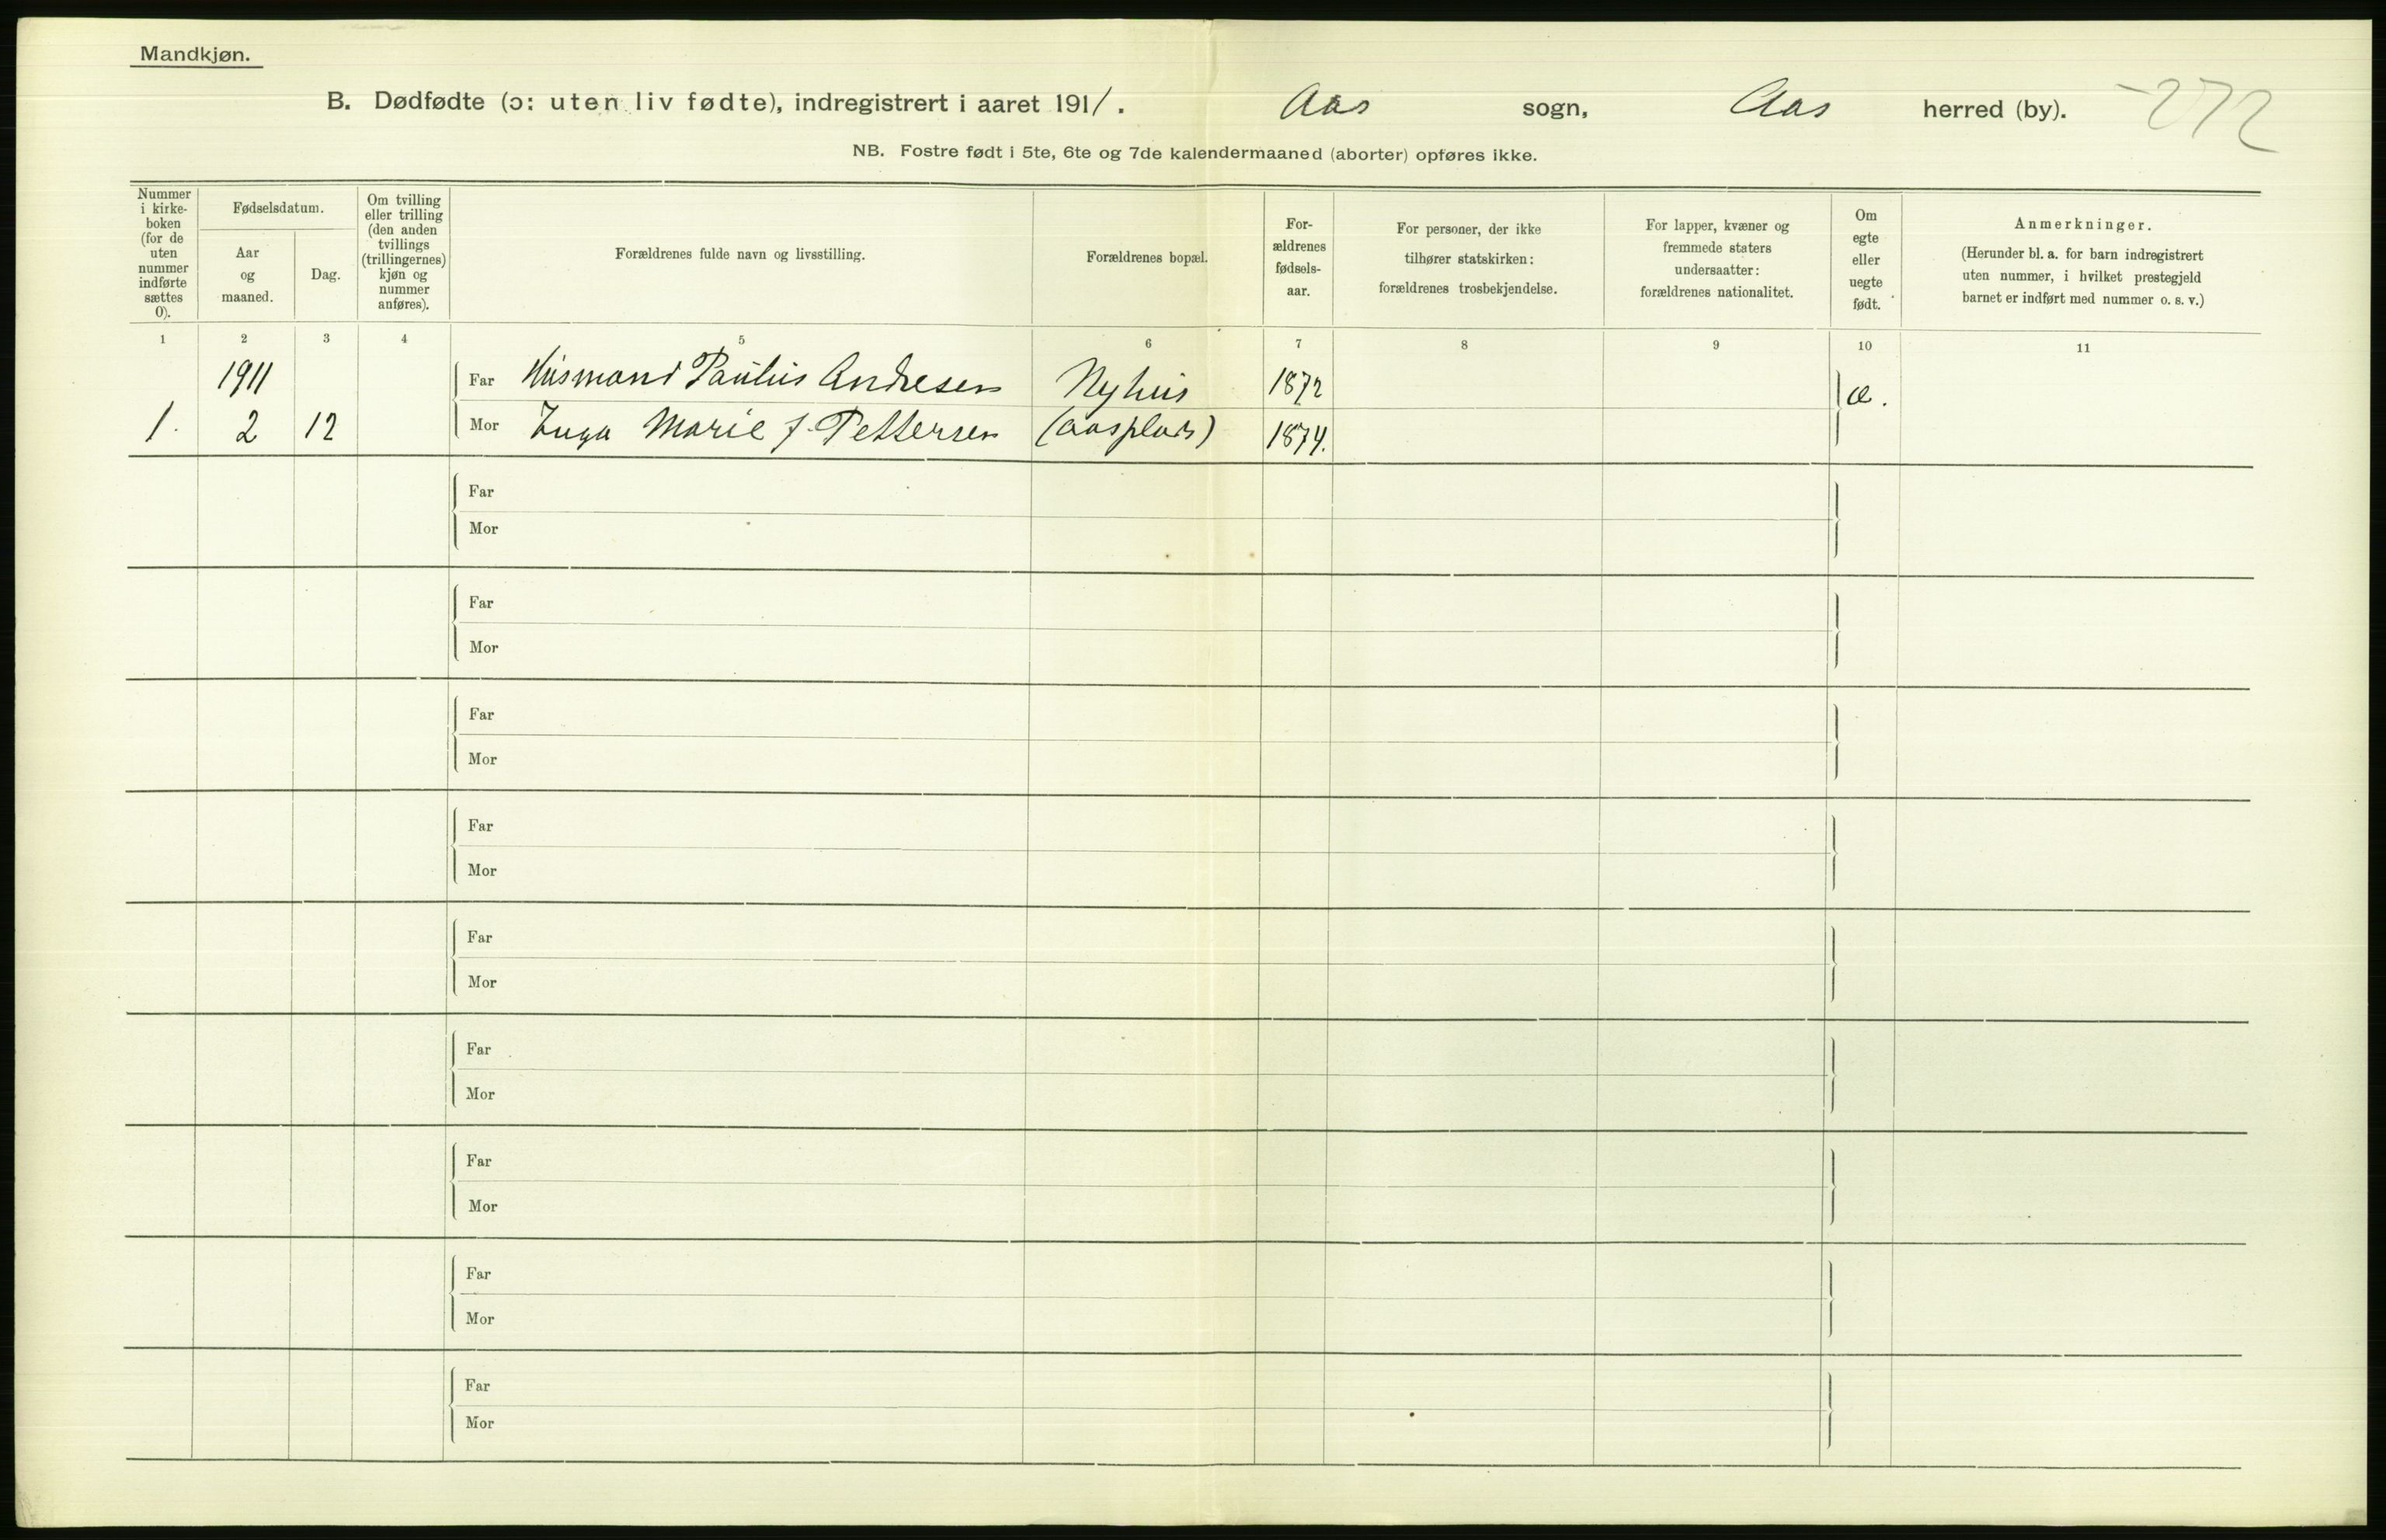 Mandkjøn.
B. Dødfødte (ɔ: uten liv fødte), indregistrert i aaret 1911. Aas sogn, Aas herred (by). 272
NB. Fostre født i 5te, 6te og 7de kalendermaaned (aborter) opføres ikke.
Nummer
i kirke-
boken
(for de
uten
nummer
indførte
sættes
0).
Fødselsdatum.
Aar
og
maaned.
Dag.
Om tvilling
eller trilling
(den anden
tvillings
(trillingernes)
kjøn og
nummer
anføres).
Forældrenes fulde navn og livsstilling.
Forældrenes bopæl.
For-
ældrenes
fødsels-
aar.
For personer, der ikke
tilhører statskirken:
forældrenes trosbekjendelse.
For lapper, kvæner og
fremmede staters
undersaatter:
forældrenes nationalitet.
Om
egte
eller
uegte
født.
Anmerkninger.
(Herunder bl. a. for barn indregistrert
uten nummer, i hvilket prestegjeld
barnet er indført med nummer o. s. v.)
1 2 3 4 5 6 7 8 9 10 11
1911 Far Husmand Paulus Andresen Nyhus 1872 æ.
1. 2 12 Mor Inga Marie f. Pettersen (aasplads) 1874.
Far
Mor
Far
Mor
Far
Mor
Far
Mor
Far
Mor
Far
Mor
Far
Mor
Far
Mor
Far
Mor